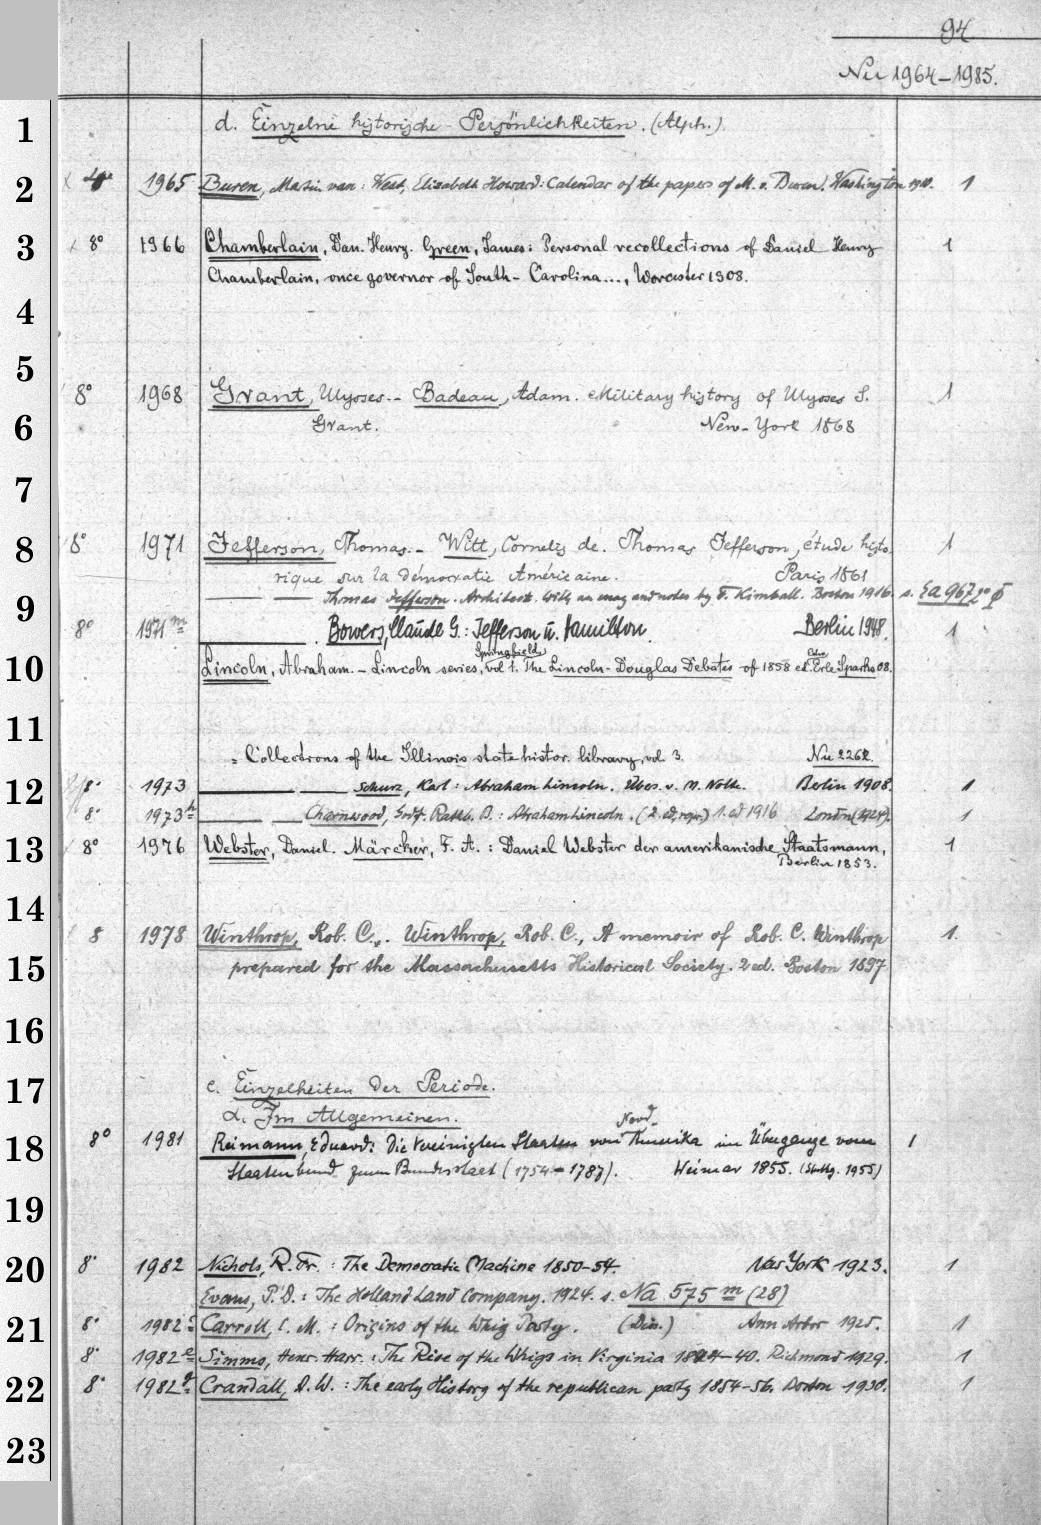 94
Nu 1964-1985.
1
d. Einzelne historische Persönlichkeiten. (Alph.)
2
4° 1965 Buren, Martin van: West, Elizabeth Howard: Calendar of the papers of M. v. Buren. Washington 1910. 1
3
8° 1966 Chamberlain, Dan. Henry. Green, James: Personal recollections of Daniel Henry 1
Chamberlain, once governor of South-Carolina..., Worcester 1908.
4
5
8° 1968 Grant, Ulysses.- Badeau, Adam. Military history of Ulysses S. 1
6
Grant. New-York 1868
7
8
8° 1971 Jefferson, Thomas.- Witt, Cornelis de. Thomas Jefferson, étude histo- 1
rique sur la démocratie Américaine. Paris 1861
9
Thomas Jefferson. Architect. With an essay and notes by F. Kimball. Boston 1916. s. Ea 967
8° 1971 m Bowers, Claude G.: Jefferson u. Hamilton. Berlin 1948. 1
10
Lincoln, Abraham. - Lincoln series, vol 1. The Lincoln-Douglas Debates of 1858 ed. Erle Sparks 08.
Springfield
11
= Collections of the Illinois state histor. library, vol. 3. Nu 2262
12
8° 1973 Schurz, Karl: Abraham Lincoln. Übers. v. M. Nolte. Berlin 1908. 1
8° 1973 h Charnwood, Godf. Rathb. B.: Abraham Lincoln. (2. ed, repr.) 1. ed 1916 London 1
13
8° 1976 Webster, Daniel. Märcker, F. A.: Daniel Webster der amerikanische Staatsmann, 1
Berlin 1853.
14
8 1978 Winthrop, Rob. C.. Winthrop, Rob. C., A memoir of Rob. C. Winthrop 1
15
prepared for the Massachusetts Historical Society. 2 ed. Boston 1897
16
17
e. Einzelheiten der Periode.
α. Im Allgemeinen.
18
8° 1981 Reimann, Eduard: Die Vereinigten Staaten von Nord-Amerika im Übergange vom 1
Staatenbund zum Bundesstaat (1754-1787). Weimar 1855. (Stuttg. 1955)
19
20
8° 1982 Nichols, R. Fr.: The Democratic Machine 1850-54. New York 1923. 1
Evans, P. D.: The Holland Land Company. 1924. s. Na 575 m (28)
21
8° 1982 c Carroll, E. M.: Origins of the Whig Party. (Diss.) Ann Arbor 1925. 1
8° 1982 e Simms, Henr. Harr.: The Rise of the Whigs in Virginia 1824-40. Richmond 1929. 1
22
8° 1982 g Crandall, A. W.: The early History of the republican party 1854-56, Boston 1930. 1
23